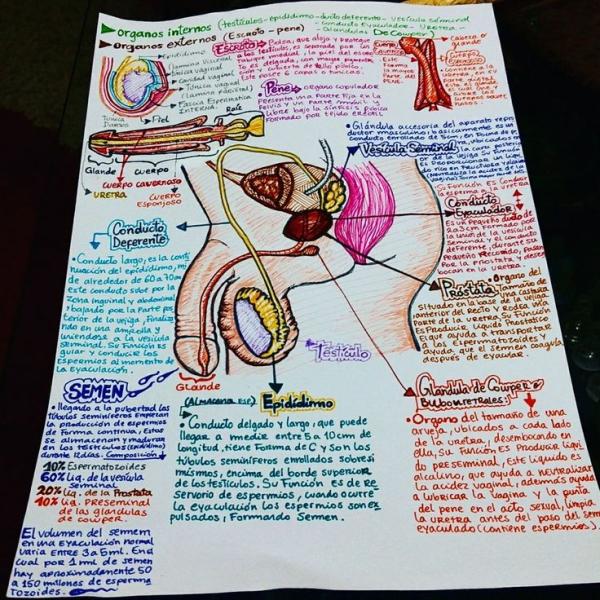 ▸ Organos internos (testículos - epidídimo - ducto deferente - vesícula seminal
- Conducto Eyaculador - Uretra -
- Glándulas De Cowper)
▸ Organos externos (Escroto - pene)
Epidídimo
(lamina visceral
Túnica vaginal
Cavidad vaginal
Túnica vaginal
(lamina parietal)
Fascia Espermática
INTERNA
Túnica
Dartos
Piel
Raíz
Glande
CUERPO
CUERPO CAVERNOSO
URETRA
CUERPO
ESPONJOSO
Escroto
Bolsa, que aloja y protege
los testículos, es separada por un
tabique medial, la piel del escro-
to es delgada, con mayor pigmenta-
ción y cubierta de vello púbico.
Este posee 6 capas o túnicas.
Pene
órgano copulador
Presenta una parte fija en la
pelvis y una parte móvil y
libre bajo la sínfisis púbica
Formado por tejido eréctil
Cuerpo
Cavernoso
Este
Forma la
mayor parte
del
Cabeza o
glande
Cuerpo
Esponjoso
la uretra, en
su
glande
el cual
• Glándula accesoria del aparato repro-
ductor masculino; básicamente es un
conducto enrollado de 5cm, en forma de
Vesícula Seminal
de la vejiga. Su Función
es Proporcionar un líqui-
do rico en fructosa y
Conducto
Eyaculador
Su Función es Condu-
esperma a la uretra
Es un pequeño ducto de
2 a 3cm formado por
la unión de la vesícula
Seminal y el conducto
deferente, durante su
pequeño Recorrido, pasan
por la Próstata y desem-
bocan en la uretra.
Próstata
Órgano del
tamaño de
una castaña
Situado en la base de la vejiga
anterior del recto y rodea la
Parte de la uretra. Su Función
es Producir líquido Prostático
El que ayuda a transportar
a los Espermatozoides y
ayuda, que el semen coagule
después de eyacular.
Conducto
Deferente
Conducto largo, es la conti-
nuación del epidídimo, mi-
de alrededor de 60 a 70cm
este conducto sube por la
zona inguinal y abdominal
, bajando por la Parte pos-
terior de la vejiga, finaliza
ndo en una ampolla y
uniendose a la vesícula
seminal. Su Función es
guiar y conducir los
Espermios al momento de
la Eyaculación.
Testículo
Glande
SEMEN
• llegando a la pubertad los
túbulos seminíferos empiezan
la producción de espermios
de forma continua, Estos
se almacenan y maduran
en los testículos (epidídimo)
durante 12 días. Composición
10% Espermatozoides
60% Liq. de la vesícula
seminal
20% Liq. de la Prostata
10% Liq. Preseminal
de las glándulas
de cowper.
El volumen del semen
en una Eyaculación normal
varia ENTRE 3 a 5ml. En el
cual por 1 ml de semen
hay aproximadamente 50
a 150 millones de esperma
tozoides.
(Almacena esp.)
Epidídimo
• Conducto delgado y largo, que puede
llegar a medir entre 5 a 10cm de
longitud, tiene forma de C y son los
túbulos seminíferos enrollados sobre si
mismos, encima del borde superior
de los testículos. Su Función es de re
servorio de espermios, cuando ocurre
la eyaculación los espermios son ex
pulsados; Formando Semen.
Glandula de Cowper o
Bulbouretrales:
• Organo del tamaño de una
arveja, ubicados a cada lado
de la uretra, desembocando en
ella, Su Función es Producir líqui
do preseminal, este líquido es
alcalino, que ayuda a neutralizar
la acidez vaginal, además ayuda
a lubricar la vagina y la punta
del pene en el acto sexual, limpia
la uretra antes del paso del semen
eyaculado (contiene espermios).